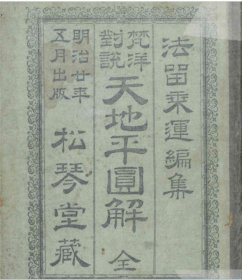 法留乘運編集
梵洋
對説
天地平圓解 全
明治廿年
五月出版
松琴堂藏